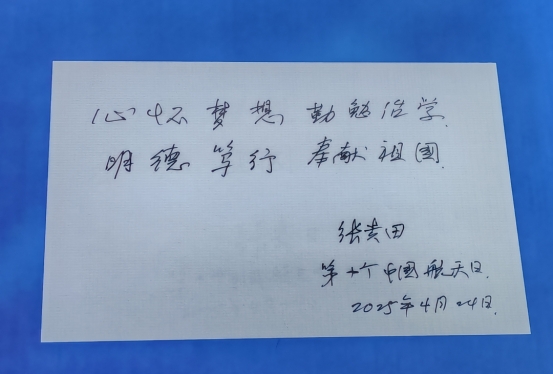 心怀梦想 勤勉治学.
明德笃行 奉献祖国.
张贵田
第十个中国航天日.
2025年4月24日.